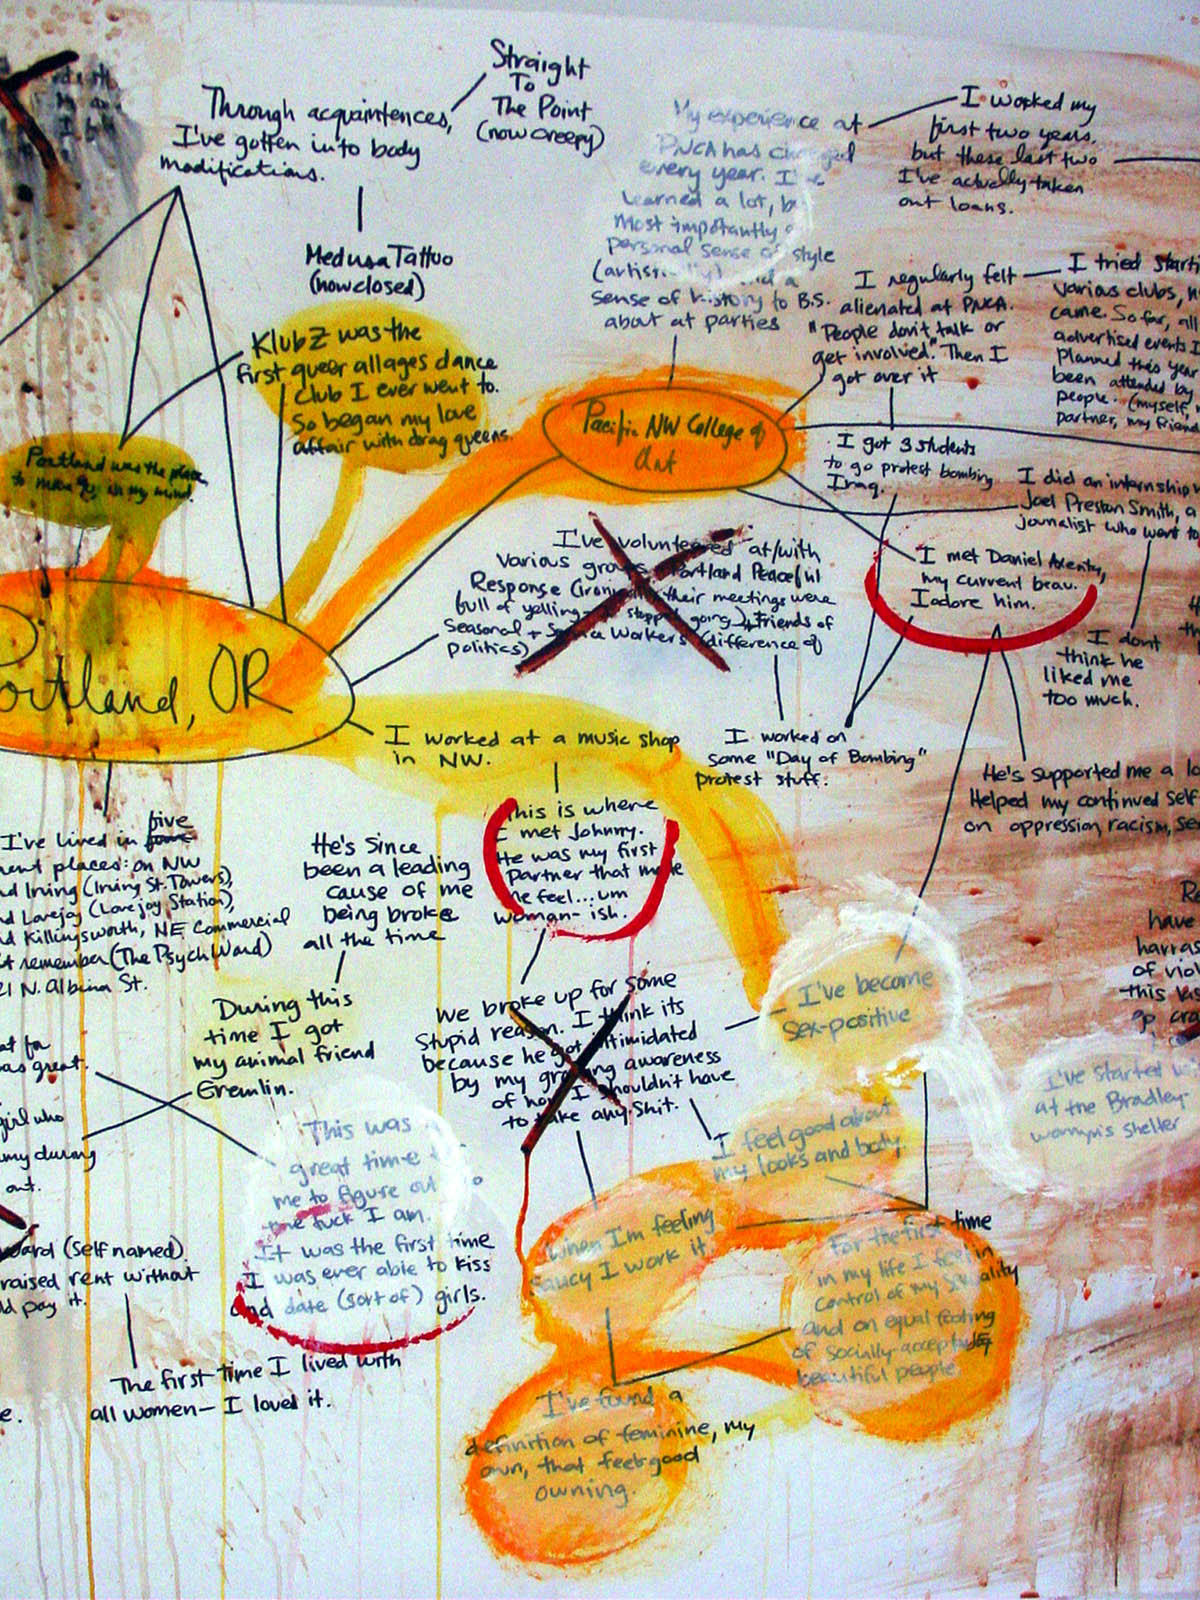 Straight
To
The Point
(now creepy)
Through acquaintences,
I've gotten into body
modifications.
Medusa Tattoo
(now closed)
My experience at
PNCA has changed
every year. I've
learned a lot, b
most importantly a
personal sense of style
(artistically) and a
sense of history to B.S.
about at parties
I worked my
first two years,
but these last two
I've actually taken
out loans.
I regularly felt
alienated at PNCA.
"People don't talk or
get involved." Then I
got over it
I tried starti
various clubs, n
came. So far, all
advertised events I
planned this year
been attended by
people. (myself,
partner, my friend
Klub Z was the
first queer all ages dance
club I ever went to.
So began my love
affair with drag queens.
Pacific NW College of
Art
Portland was the place
to move to in my mind.
I got 3 students
to go protest bombing
Iraq.
I did an internship w
Joel Preston Smith, a
journalist who went to
I don't
think he
liked me
too much.
I met Daniel
my current beau.
I adore him.
I've volunteered at/with
various groups Portland Peaceful
Response (ironically their meetings were
full of yelling - stopped going), Friends of
Seasonal + Service Workers (difference of
politics)
Portland, OR
I worked on
some "Day of Bombing"
protest stuff.
He's supported me a lo
Helped my continued self
on oppression, racism, se
I worked at a music shop
in NW.
This is where
I met Johnny.
He was my first
Partner that made
me feel...um
woman-ish.
five
I've lived in four
rent places: on NW
nd Irving (Irving St. Towers),
nd Lovejoy (Lovejoy Station),
d Killingsworth, NE Commercial
't remember (The Psych Ward)
21 N. Albina St.
He's since
been a leading
cause of me
being broke
all the time
During this
time I got
my animal friend
Gremlin.
We broke up for some
stupid reason. I think its
because he got intimidated
by my growing awareness
of how I shouldn't have
to take any shit.
I've become
sex-positive
R
have
harras
of viol
this las
I've started
at the Bradley-
womyn's shelter
as great.
girl who
my during
out.
This was
great time
me to figure out
the fuck I am.
It was the first time
I was ever able to kiss
and date (sort of) girls.
I feel good about
my looks and body.
When I'm feeling
saucy I work it
For the first time
in my life I feel in
control of my sexuality
and on equal footing
of socially-acceptable
beautiful people
ward (self named)
raised rent without
ld pay it.
The first time I lived with
all women- I loved it.
e.
I've found a
definition of feminine, my
own, that feel good
owning.